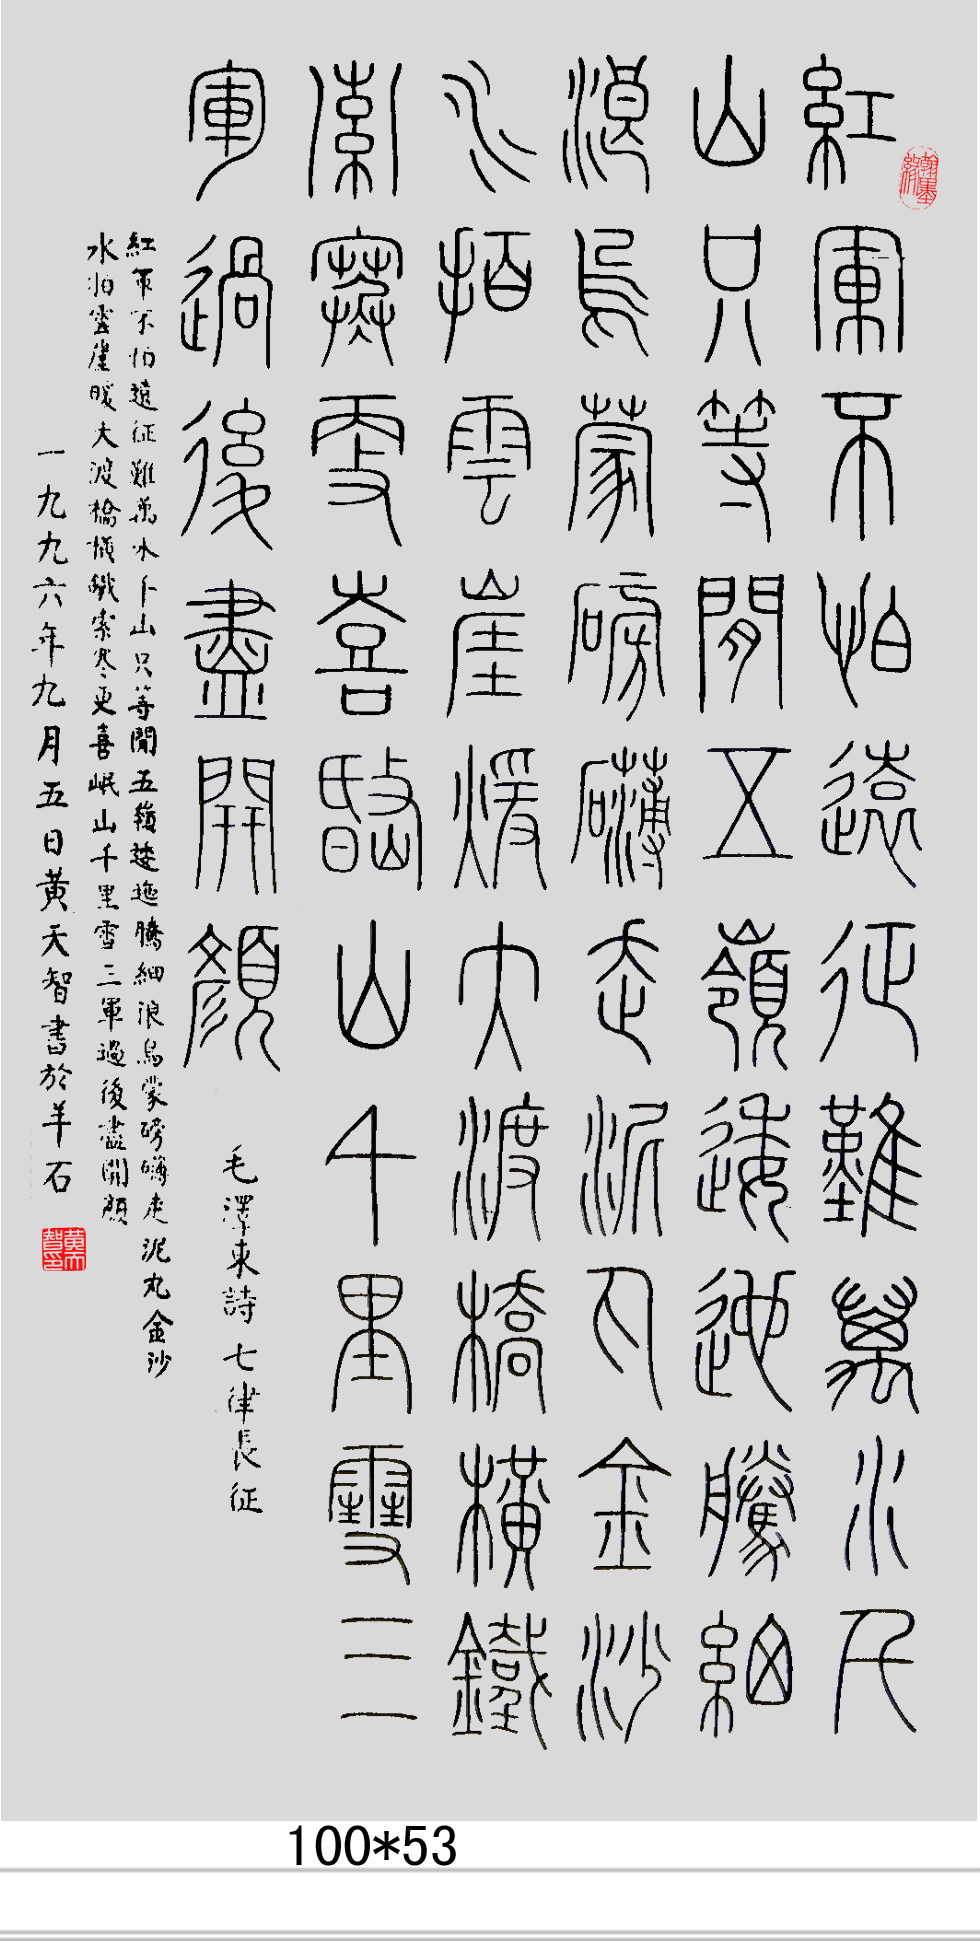 紅軍不怕遠征難萬水千
山只等閒五嶺逶迤騰細
浪烏蒙磅礴走泥丸金沙
水拍雲崖煖大渡橋橫鐵
索寒更喜岷山千里雪三
軍過後盡開顏
毛澤東詩七律長征
紅軍不怕遠征難萬水千山只等閒五嶺逶迤騰細浪烏蒙磅礴走泥丸金沙
水拍雲崖暖大渡橋橫鐵索寒更喜岷山千里雪三軍過後盡開顏
一九九六年九月五日黃天智書於羊石
翰墨緣
黃天智印
100*53